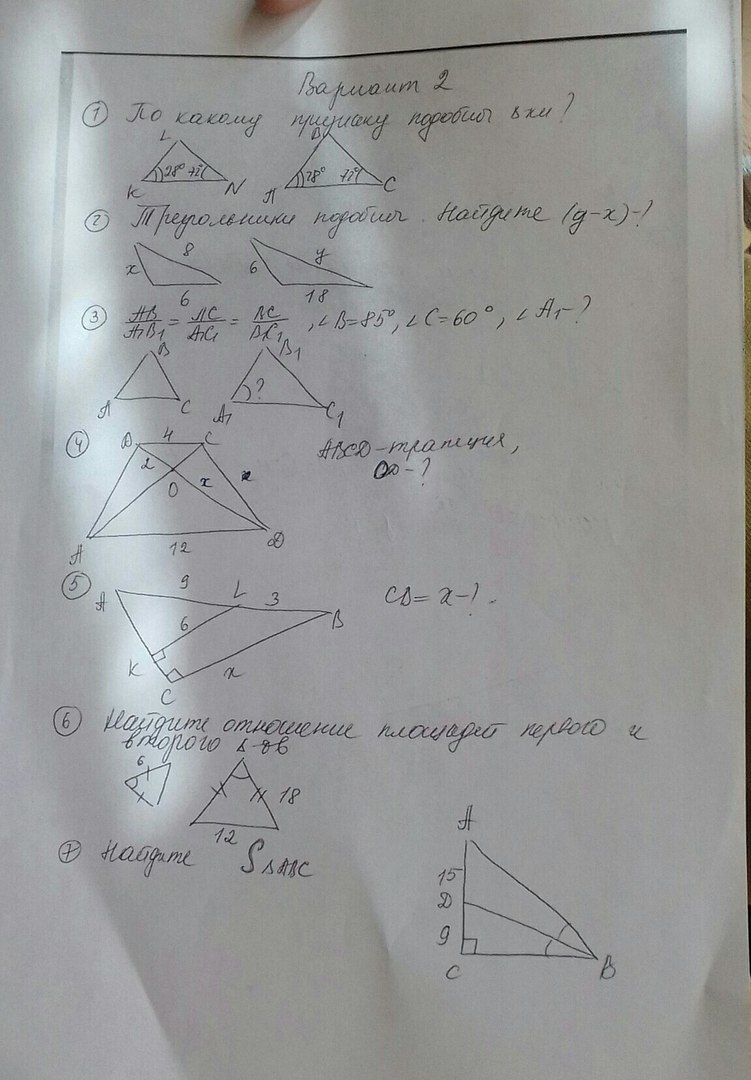 Вариант 2
① По какому признаку подобны Δки?
L B
28° 72° 28° 72°
K N A C
② Треугольники подобны. Найдите (y-x)-?
x 8 6 y
6 18
③ AB/A₁B₁ = AC/A₁C₁ = BC/B₁C₁, ∠B=85°, ∠C=60°, ∠A₁-?
B B₁
?
A C A₁ C₁
④ B 4 C ABCD-трапеция,
2 x OD-?
O
A 12 D
⑤ A 9 L 3 B CB= x-?.
6
K x
C
⑥ Найдите отношение площадей первого и
второго Δ-ов
6 18
12
⑦ Найдите S ΔABC
A
15
D
9
C B